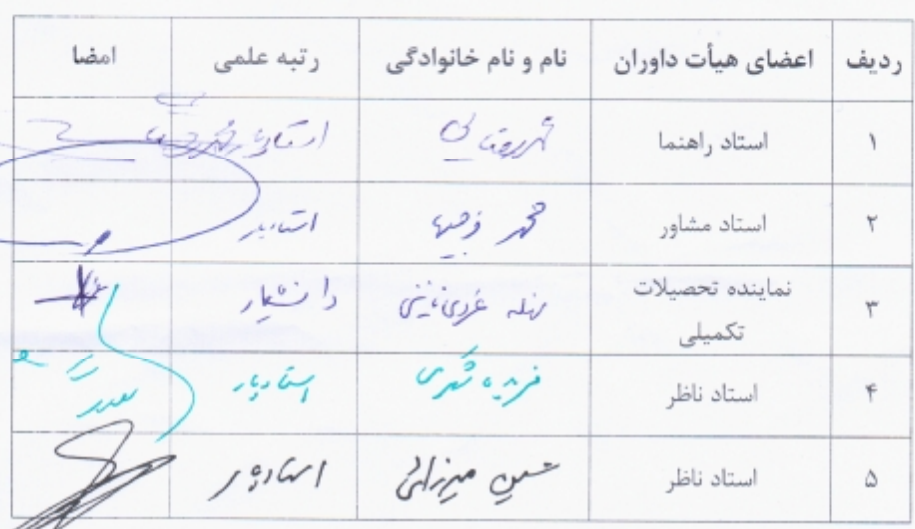 ردیف اعضای هیأت داوران نام و نام خانوادگی رتبه علمی امضا
۱ استاد راهنما استادیار
۲ استاد مشاور محمد فرجیها استادیار
۳ نماینده تحصیلات تکمیلی دانشیار
۴ استاد ناظر استادیار
۵ استاد ناظر حسین میرزائی استادیار